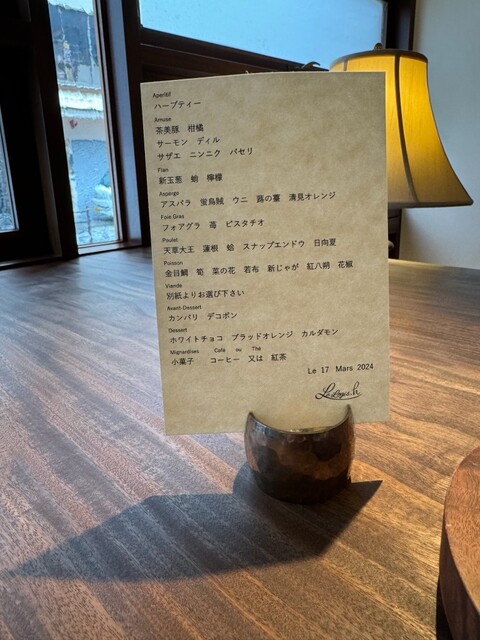 Aperitif
ハーブティー
Amuse
茶美豚 柑橘
サーモン ディル
サザエ ニンニク パセリ
Flan
新玉葱 蛤 檸檬
Asperge
アスパラ 蛍烏賊 ウニ 蕗の薹 清見オレンジ
Foie Gras
フォアグラ 苺 ピスタチオ
Poulet
天草大王 蓮根 蛤 スナップエンドウ 日向夏
Poisson
金目鯛 筍 菜の花 若布 新じゃが 紅八朔 花椒
Viande
別紙よりお選び下さい
Avant-Dessert
カンパリ デコポン
Dessert
ホワイトチョコ ブラッドオレンジ カルダモン
Mignardises Café ou Thé
小菓子 コーヒー 又は 紅茶
Le 17 Mars 2024